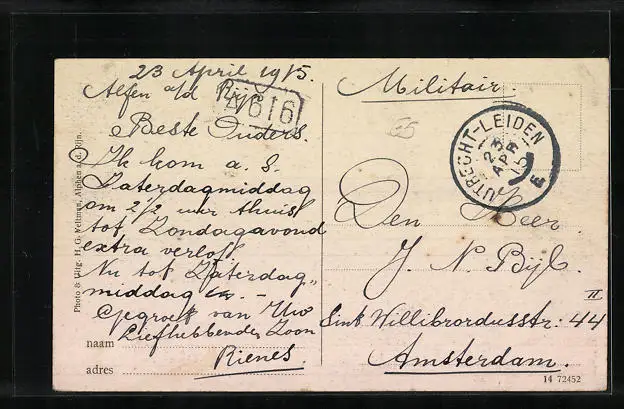 23 April 1915.
Alfen a/d Rijn
Beste Ouders.
Ik kom a.s.
Zaterdagmiddag
om 2 1/2 uur thuis
tot Zondagavond
extra verlof.
Nu tot Zaterdag"
middag
Gegroet van Uw
Liefhebbenden Zoon
naam
Rienes.
adres
Photo & Uitg. H. G. Veltman, Alphen a. d. Rijn.
Militair.
65
UTRECHT-LEIDEN
23
APR
15
E
Den Heer
J. N. Bijl.
II
Sint Willibrordusstr. 44
Amsterdam.
14 72452